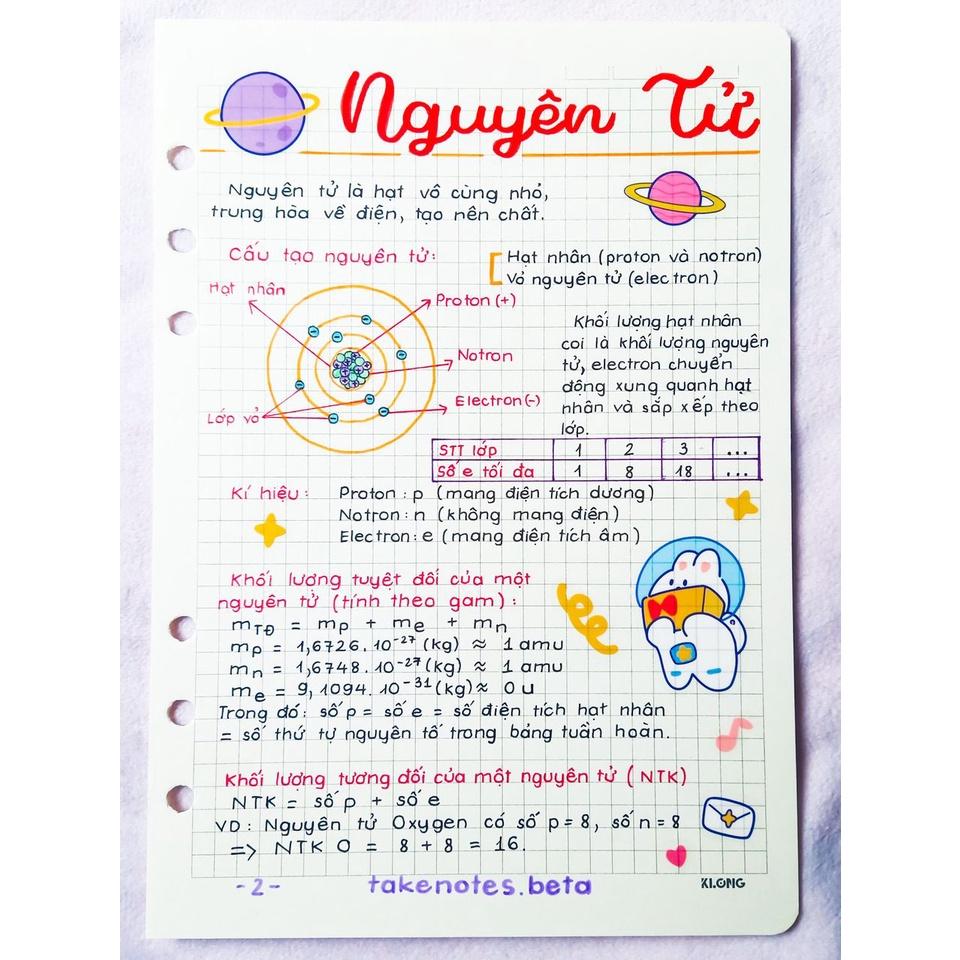 Nguyên Tử
Nguyên tử là hạt vô cùng nhỏ,
trung hòa về điện, tạo nên chất.
Cấu tạo nguyên tử:
Hạt nhân (proton và notron)
Vỏ nguyên tử (electron)
Hạt nhân
Proton (+)
Notron
Electron (-)
Lớp vỏ
Khối lượng hạt nhân
coi là khối lượng nguyên
tử, electron chuyển
động xung quanh hạt
nhân và sắp xếp theo
lớp.
STT lớp 1 2 3 ...
Số e tối đa 1 8 18 ...
Kí hiệu: Proton: p (mang điện tích dương)
Notron: n (không mang điện)
Electron: e (mang điện tích âm)
Khối lượng tuyệt đối của một
nguyên tử (tính theo gam):
mTĐ = mp + me + mn
mp = 1,6726.10⁻²⁷ (kg) ≈ 1 amu
mn = 1,6748.10⁻²⁷ (kg) ≈ 1 amu
me = 9,1094.10⁻³¹ (kg) ≈ 0 u
Trong đó: số p = số e = số điện tích hạt nhân
= số thứ tự nguyên tố trong bảng tuần hoàn.
Khối lượng tương đối của một nguyên tử (NTK)
NTK = số p + số e
VD: Nguyên tử Oxygen có số p = 8, số n = 8
=> NTK O = 8 + 8 = 16.
-2-
takenotes.beta
KLONG